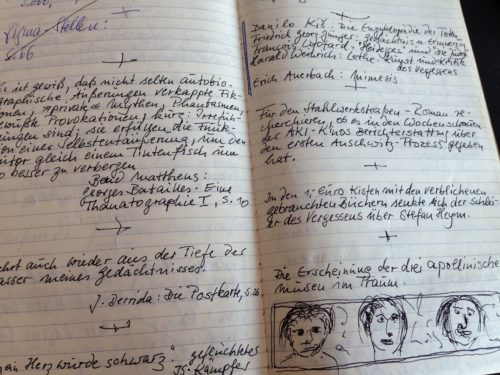 S. 66
Es ist gewiß, daß nicht selten autobio-
graphische Äußerungen verkappte Fik-
tionen, »private« Mythen, Phantasmen,
Provokationen, kurz:
sind; sie erfüllen die Funk-
tion einer Selbstentäußerung, um den
Autor gleich einem Tintenfisch nur
so besser zu verbergen
Bernd Mattheus:
Georges Bataille: Eine
Thanatographie I, S. 10
auch wieder aus der Tiefe der
Wasser meines Gedächtnisses.
J. Derrida: Die Postkarte, S.
mein Herz würde schwarz." geflüchteter
IS-Kämpfer
Danilo Kiš: Die Enzyklopädie der Toten
Friedrich Georg Jünger: Gedächtnis u. Erinnerung
François Lyotard: Heidegger und "die Juden"
Harald Weinrich: Lethe. Kunst und Kritik
des Vergessens
Erich Auerbach: Mimesis
Für den Stahlwerkstraßen-Roman re-
cherchieren, ob es in den Wochenschauen
der AKI-Kinos Berichterstattung über
den ersten Auschwitz-Prozess gegeben
hat.
In den 1,- Euro Kisten mit den verblichenen
gebrauchten Büchern senkte sich der Schlei-
er des Vergessens über Stefan Heym.
Die Erscheinung der drei apollinischen
Musen im Traum.